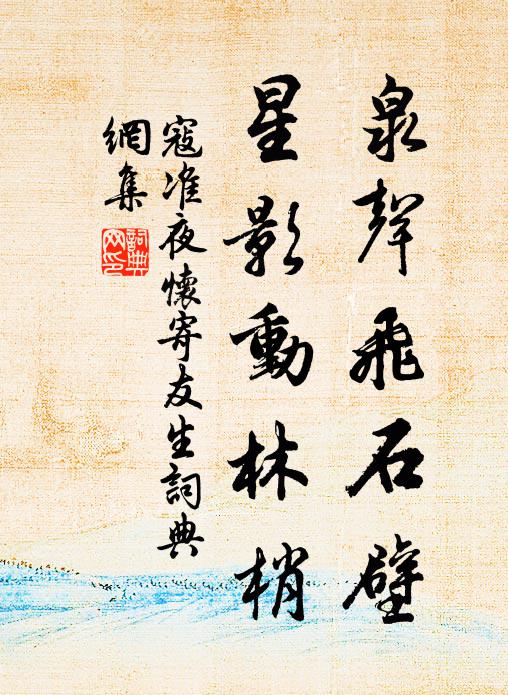 泉聲飛石壁
星影動林梢
寇准夜懷寄友生詞典
網集
詞典
网印